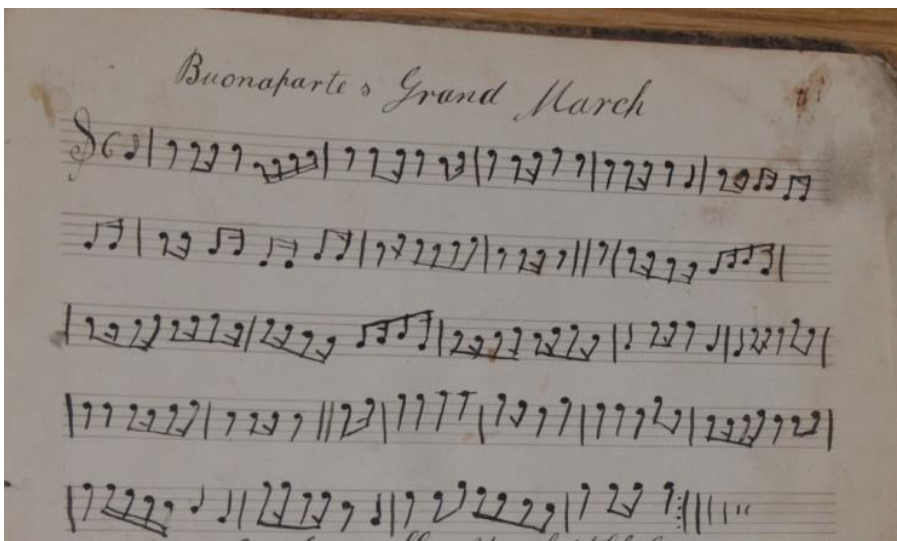 Buonaparte s Grand March